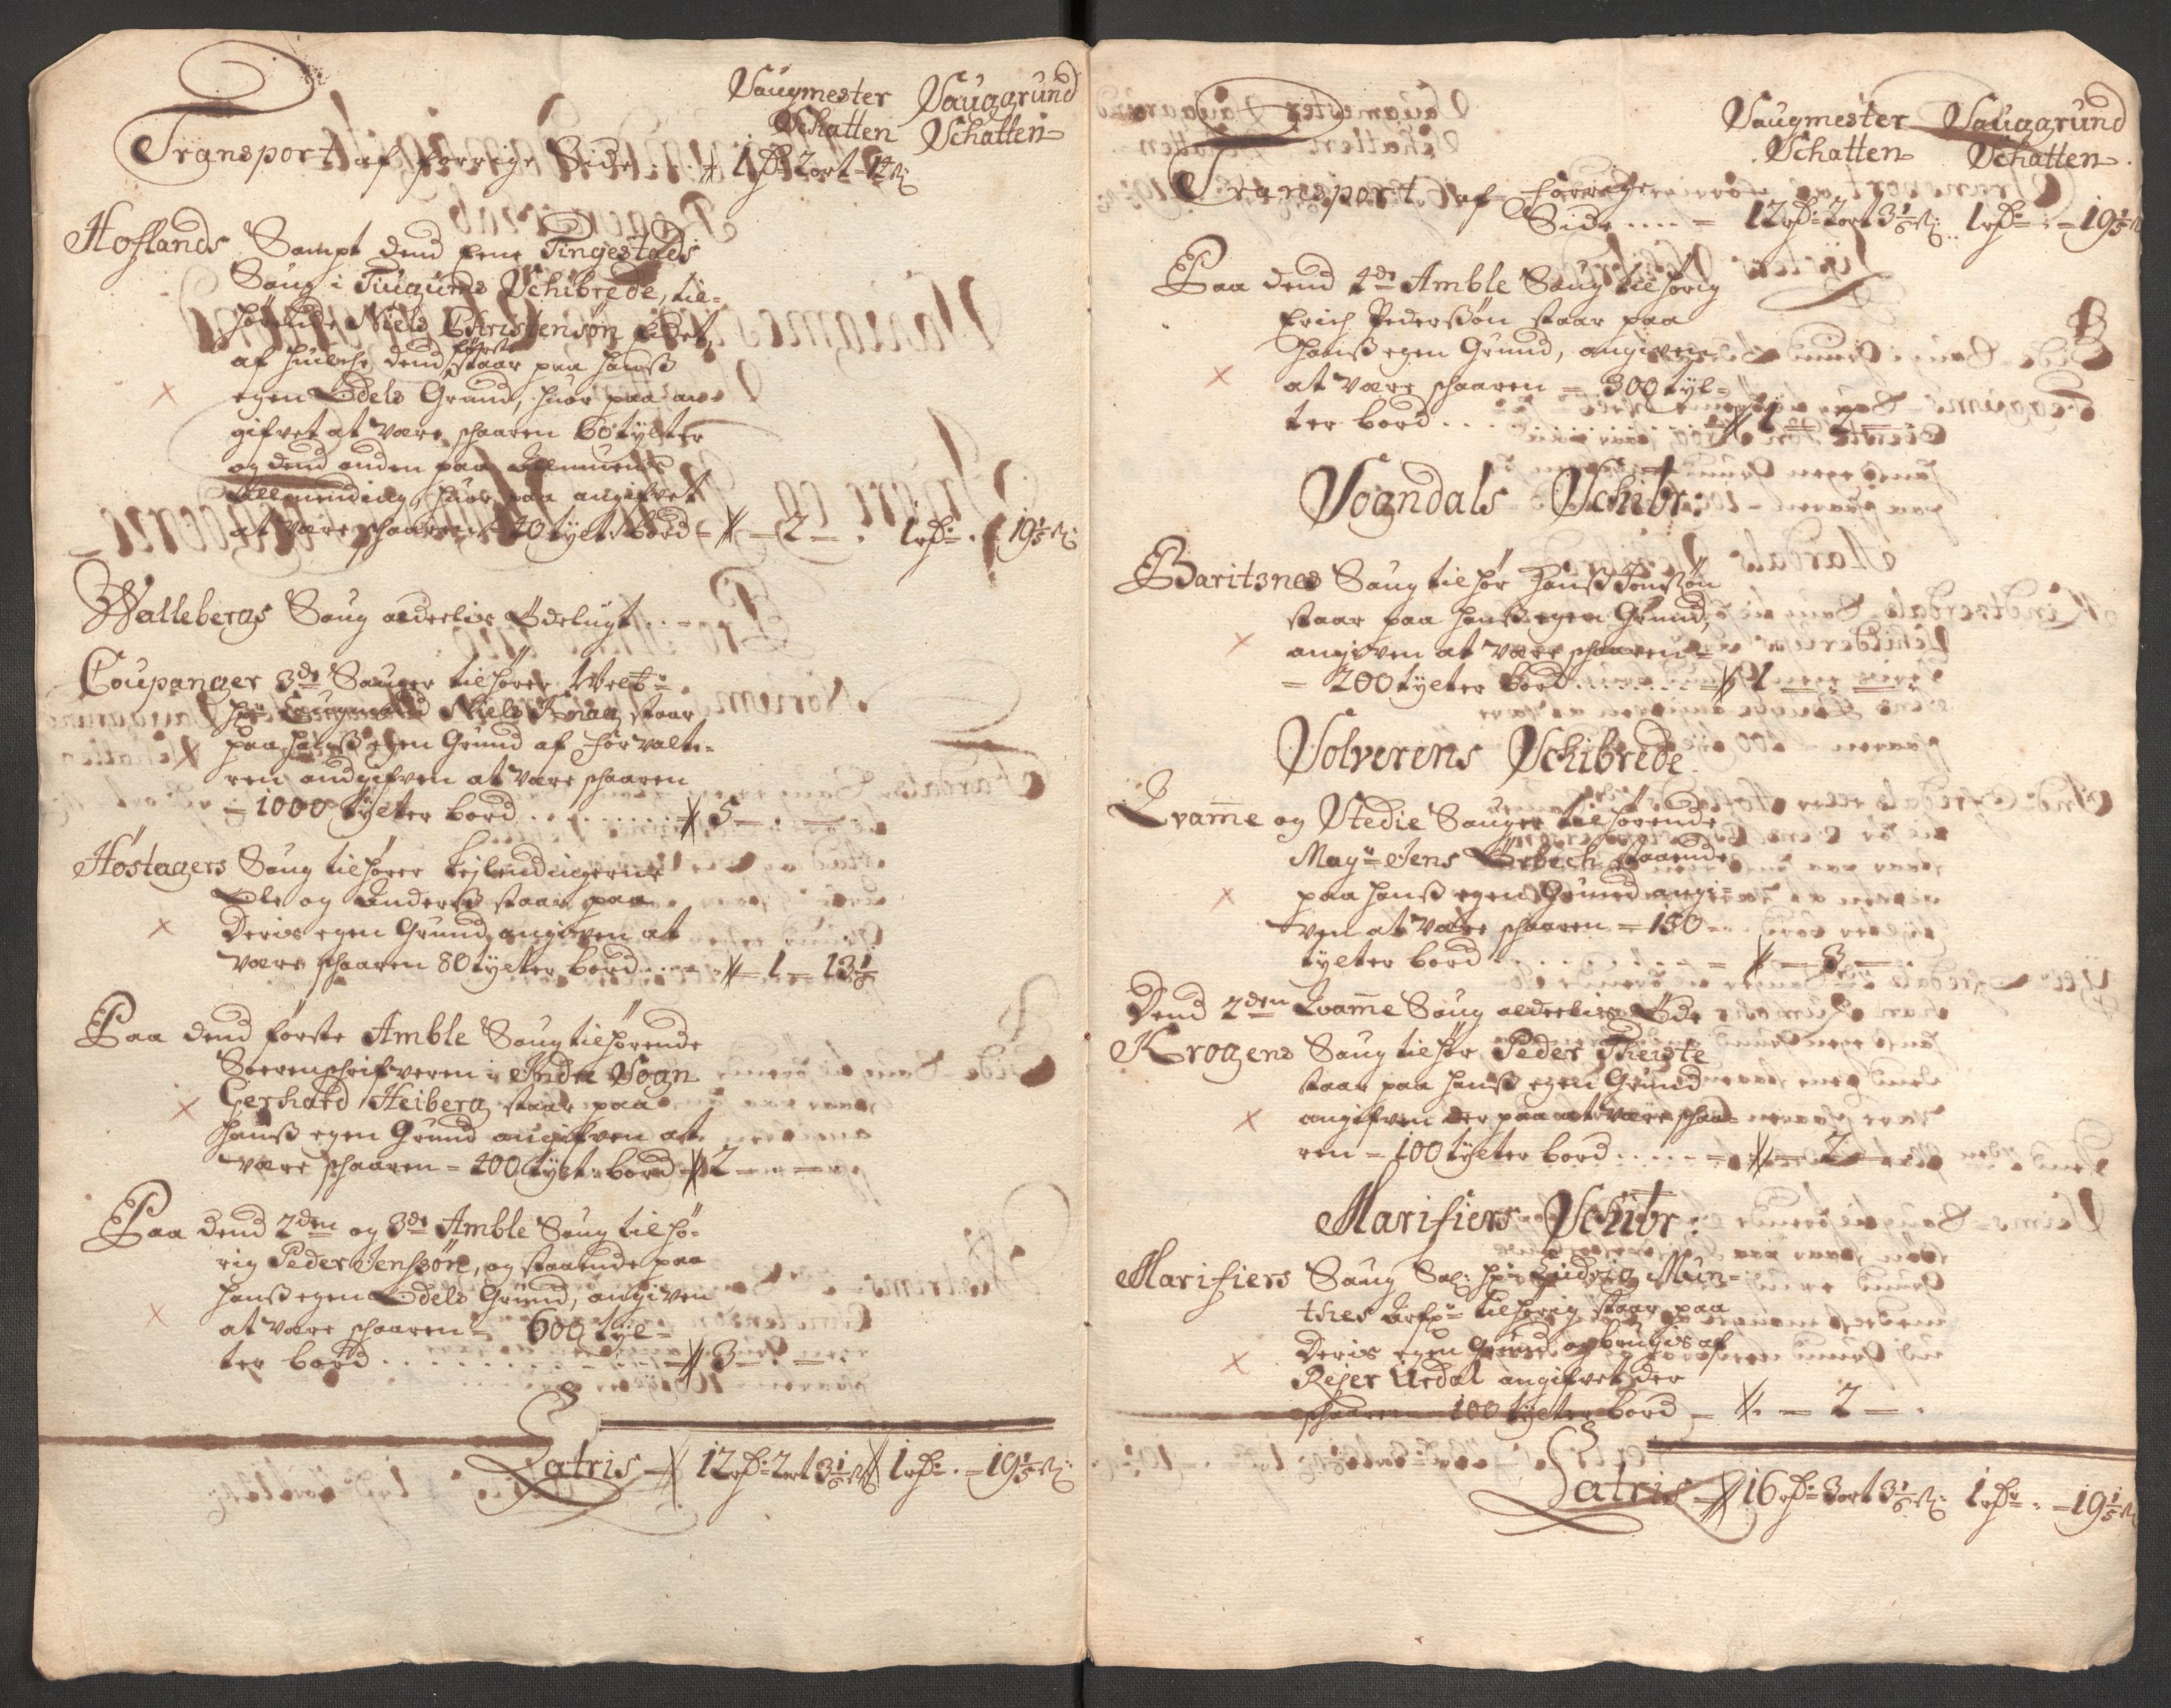 Saugmester Sauggrund
Schatten Schatten
Transport af forrige Side . . 1 rdr 2 ort 14 s:
Hoflands Sampt dend Eene Tingestads
Saug i Tuugums Schibrede, til-
hörende Niels Christensøn Eidet,
af huilche dend første staar paa hans
egen Odels Grund, huor paa an-
gifvet at være schaaren 60 tylter
og dend anden paa Allmuens
Allmending, huor paa angifvet
at være schaaren 40 tylt: bord - - 2 - . 1 rdr . 19 1/5 s:
Wallebergs Saug alderlis Ødelagt . .
Coupanger 3de Sauger tilhører Welb:
hr: Laugmand Niels Knag, staar
paa hanß egen Grund af forvalte-
ren andgifven at være schaaren
- 1000 tylter bord . . . . . . . . 5 - . -
Höstagers Saug tilhører Leilendingerne
Ole og Anders staar paa
deris egen Grund angiven at
være schaaren 80 tylter bord . . . - 1 - 13 1/6
Paa dend förste Amble Saug tilhørende
Soerenschrifveren i Indre Sogn
Gerhard Heiberg, staar paa
hanß egen Grund angifven at
være schaaren - 400 tylt: bord - 2 - - -
Paa dend 2den og 3de Amble Saug tilhø-
rig Peder Jenssön, og staaende paa
hanß egen Odels Grund, angiven
at være schaaren - 600 tyl-
ter bord . . . . . . . . . . 3 - . -
Latris - 12 rdr: 2 ort 3 1/6 s: 1 rdr . - 19 1/5 s:
Saugmester Sauggrund
Schatten Schatten
Transport af forrige
Side . . . . - 12 rdr: 2 ort 3 1/6 s: 1 rdr: . - 19 1/5 s
Paa dend 4de Amble Saug tilhørig
Erich Pederssøn staar paa
Hanß egen Grund, angiven
at være schaaren - 300 tyl-
ter bord . . . . . . . . . 1 - 2 -
Sogndals Schibr:
Baritsnes Saug tilhør Hanß Jonssøn
staar paa hanß egen Grund,
angiven at være schaaren -
- 200 tylter bord . . . . . . . . 1 - . -
Solverens Schibrede
Qvam̄e og Stedie Sauger tilhørende
Mag: Jens Ørbech staaende
paa hanß egen Grund angi-
ven at være schaaren - 150
tylter bord . . . . . . . - - 3 - .
Dend 2den Qvam̄e Saug alderlis Øde
Krogens Saug tilhør Peder Theiste
staar paa hanß egen Grund
angifven der paa at være schaa-
ren - 100 tylter bord . . . . . - - 2 -
Marifiers Schibr
Marifiers Saug Sal: hr: Ludvig Mun-
thes Arfv: tilhørig staar paa
deris egen Grund og brugis af
Rejer Urdal angifvet der
schaaren 100 tylter bord - - 2 - .
Latris - 16 rdr: 3 ort 3 1/6 s: 1 rdr: . - 19 1/5 s